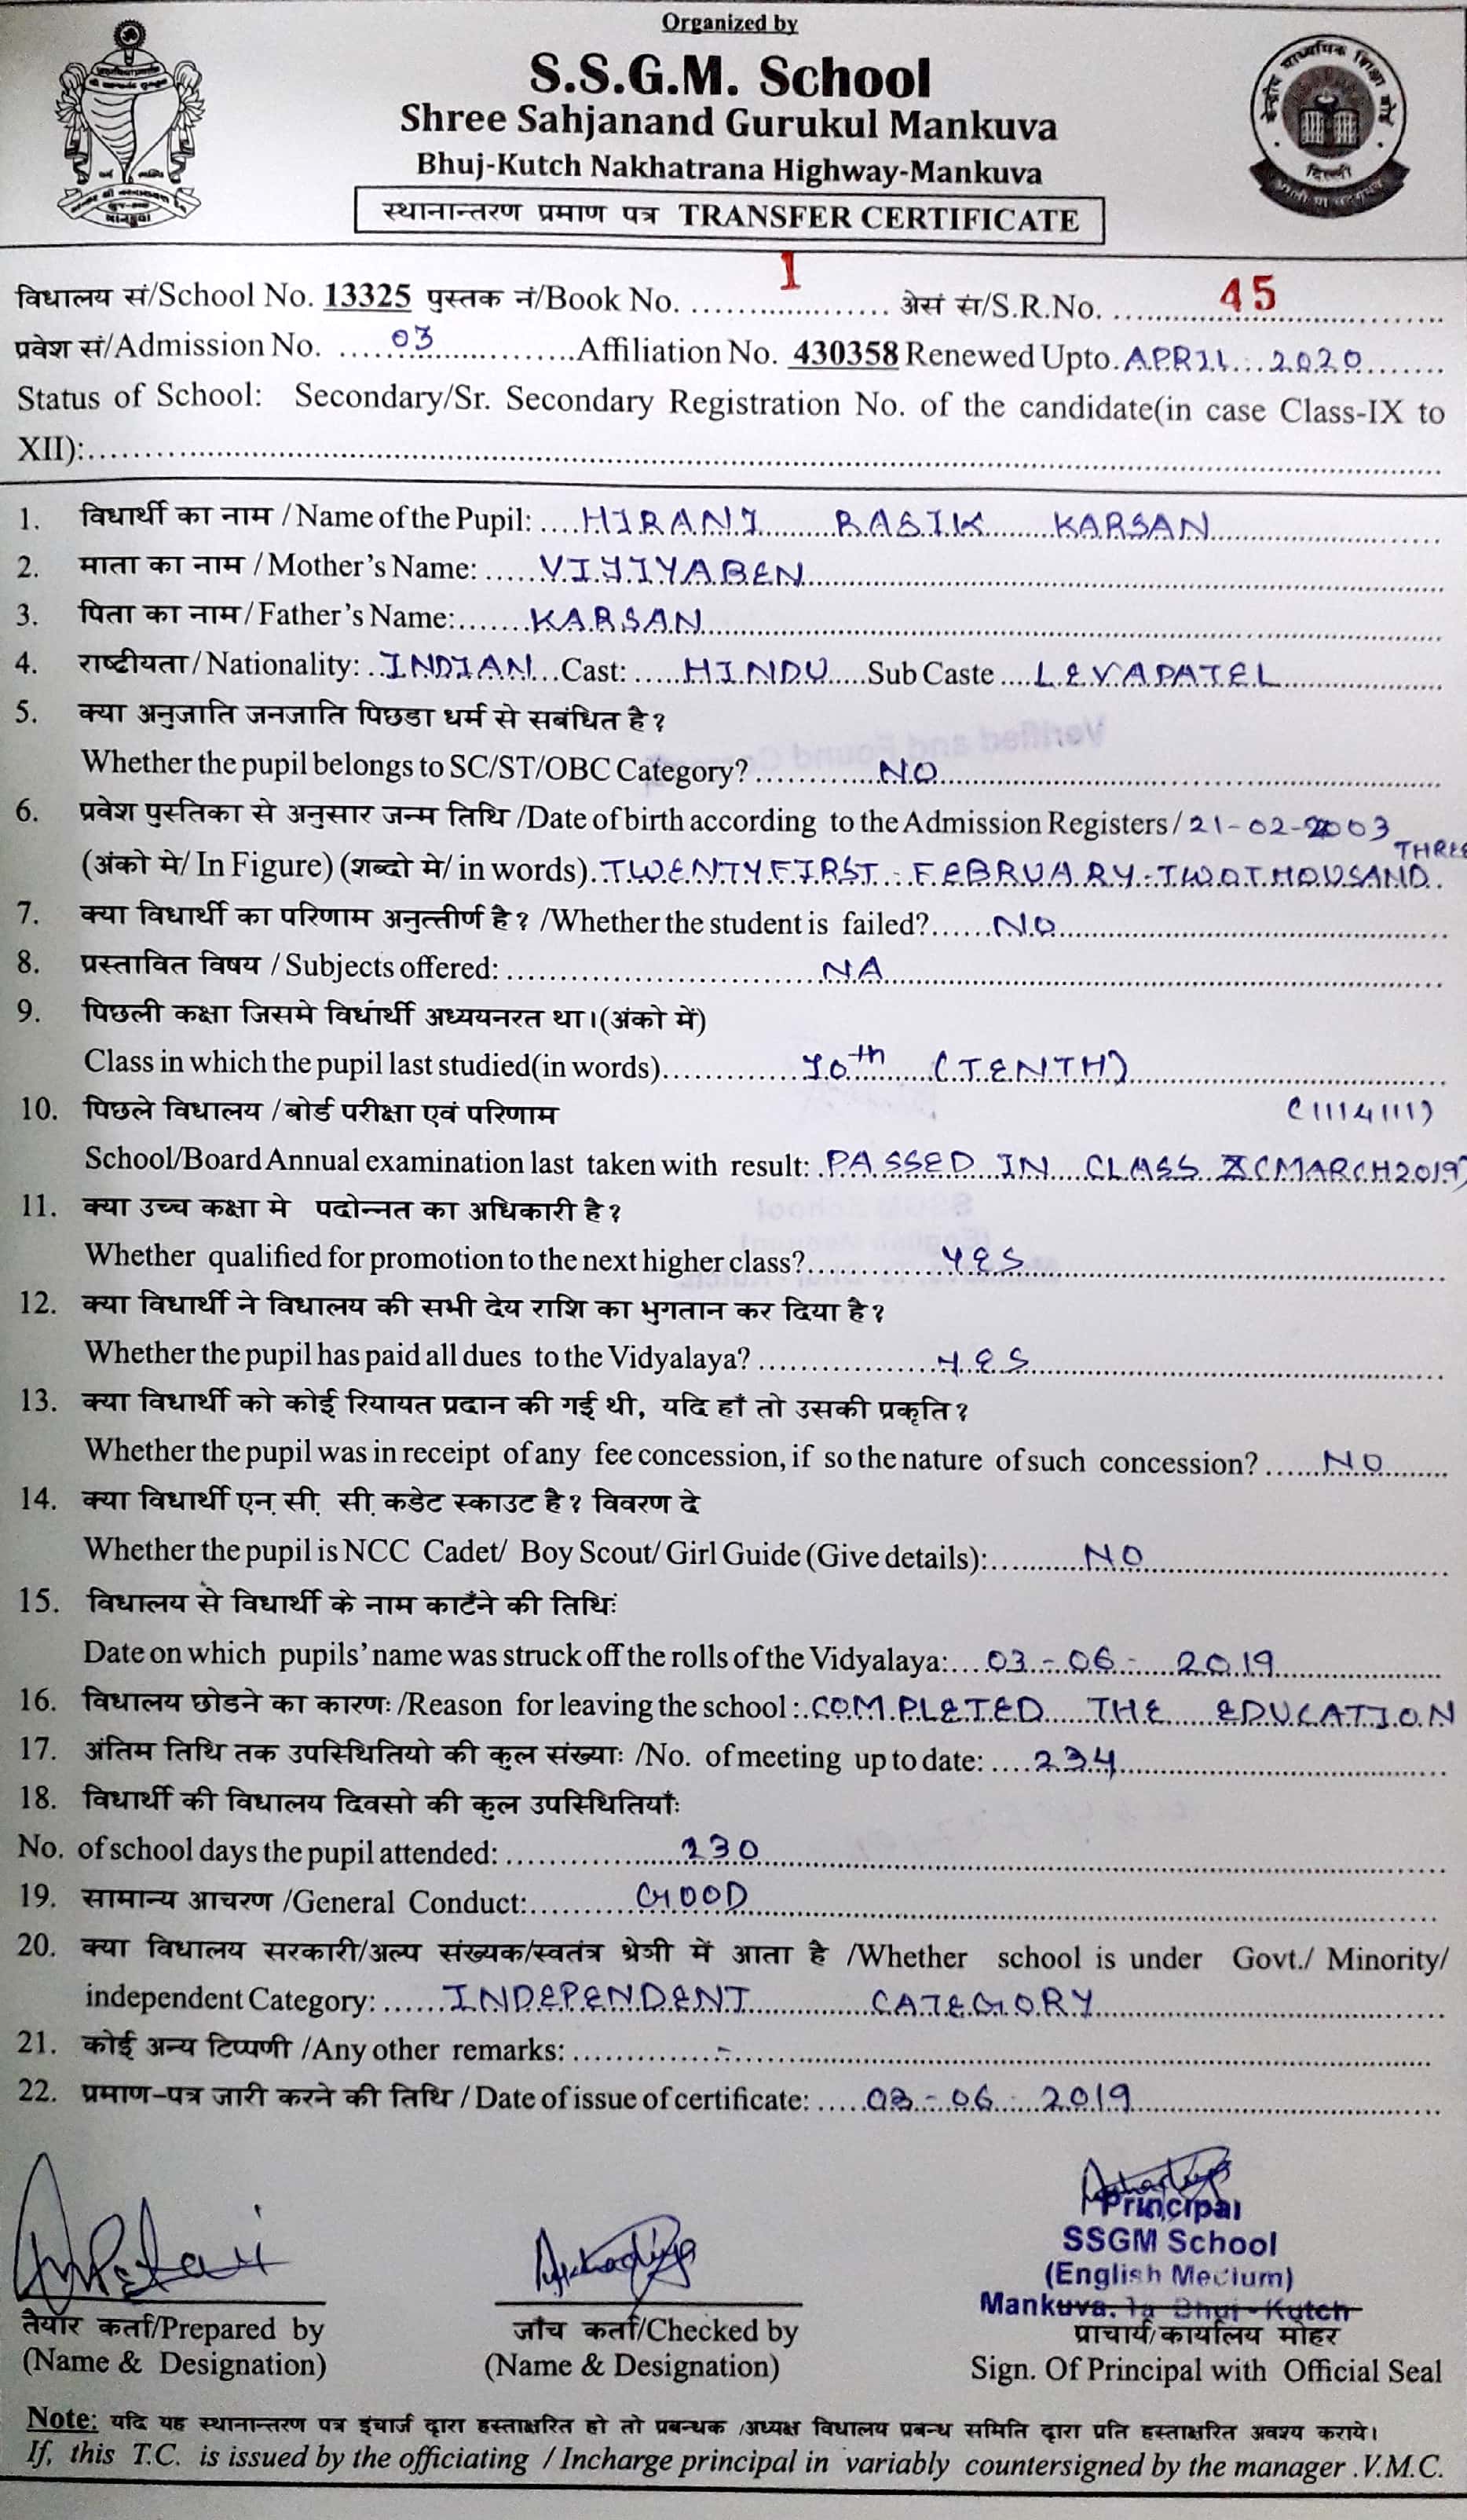 Organized by
S.S.G.M. School
Shree Sahjanand Gurukul Mankuva
Bhuj-Kutch Nakhatrana Highway-Mankuva
स्थानान्तरण प्रमाण पत्र TRANSFER CERTIFICATE
दिल्ली
विधालय सं/School No. 13325 पुस्तक नं/Book No. .................... 1 अेसं सं/S.R.No. .................... 45
प्रवेश सं/Admission No. ....03....Affiliation No. 430358 Renewed Upto. APRIL 2020
Status of School: Secondary/Sr. Secondary Registration No. of the candidate(in case Class-IX to
XII):....................
1. विधार्थी का नाम /Name of the Pupil: ....HIRANI RASIK KARSAN
2. माता का नाम /Mother's Name: ......VIJIYABEN
3. पिता का नाम/Father's Name:.......KARSAN
4. राष्टीयता/Nationality: ..INDIAN...Cast: .....HINDU.....Sub Caste ....LEVAPATEL
5. क्या अनुजाति जनजाति पिछडा धर्म से सबंधित है?
Whether the pupil belongs to SC/ST/OBC Category? ............NO
6. प्रवेश पुस्तिका से अनुसार जन्म तिथि /Date of birth according to the Admission Registers/ 21-02-2003
(अंको मे/ In Figure) (शब्दो मे/ in words)..TWENTY FIRST - FEBRUARY - TWO THOUSAND. THREE
7. क्या विधार्थी का परिणाम अनुत्तीर्ण है? /Whether the student is failed?......NO
8. प्रस्तावित विषय / Subjects offered: ....................NA
9. पिछली कक्षा जिसमे विधार्थी अध्ययनरत था।(अंको में)
Class in which the pupil last studied(in words)............10th (TENTH)
10. पिछले विधालय /बोर्ड परीक्षा एवं परिणाम (1114111)
School/Board Annual examination last taken with result: .PASSED IN CLASS X (MARCH 2019)
11. क्या उच्च कक्षा मे पदोन्नत का अधिकारी है?
Whether qualified for promotion to the next higher class?............YES
12. क्या विधार्थी ने विधालय की सभी देय राशि का भुगतान कर दिया है?
Whether the pupil has paid all dues to the Vidyalaya? ................YES
13. क्या विधार्थी को कोई रियायत प्रदान की गई थी, यदि हाँ तो उसकी प्रकृति?
Whether the pupil was in receipt of any fee concession, if so the nature of such concession? ......NO
14. क्या विधार्थी एन. सी. सी. कडेट स्काउट है? विवरण दे
Whether the pupil is NCC Cadet/ Boy Scout/ Girl Guide (Give details):...........NO
15. विधालय से विधार्थी के नाम काटँने की तिथिः
Date on which pupils' name was struck off the rolls of the Vidyalaya:....03-06-2019
16. विधालय छोडने का कारणः /Reason for leaving the school :.COMPLETED THE EDUCATION
17. अंतिम तिथि तक उपस्थितियो की कुल संख्याः /No. of meeting up to date: ....234
18. विधार्थी की विधालय दिवसो की कुल उपस्थितियाँः
No. of school days the pupil attended: ....................230
19. सामान्य आचरण /General Conduct:..........GOOD
20. क्या विधालय सरकारी/अल्प संख्यक/स्वतंत्र श्रेञी में आता है /Whether school is under Govt./ Minority/
independent Category: ......INDEPENDENT CATEGORY
21. कोई अन्य टिप्पणी /Any other remarks: ...............-
22. प्रमाण-पत्र जारी करने की तिथि / Date of issue of certificate: .....03-06-2019
Principal
SSGM School
(English Medium)
Mankuva. Ta Bhuj - Kutch
तैयार कर्ता/Prepared by जाँच कर्ता/Checked by प्राचार्य/कार्यालय मोहर
(Name & Designation) (Name & Designation) Sign. Of Principal with Official Seal
Note: यदि यह स्थानान्तरण पत्र इंचार्ज द्वारा हस्ताक्षरित हो तो प्रबन्धक /अध्यक्ष विधालय प्रबन्ध समिति द्वारा प्रति हस्ताक्षरित अवश्य कराये।
If, this T.C. is issued by the officiating / Incharge principal in variably countersigned by the manager .V.M.C.